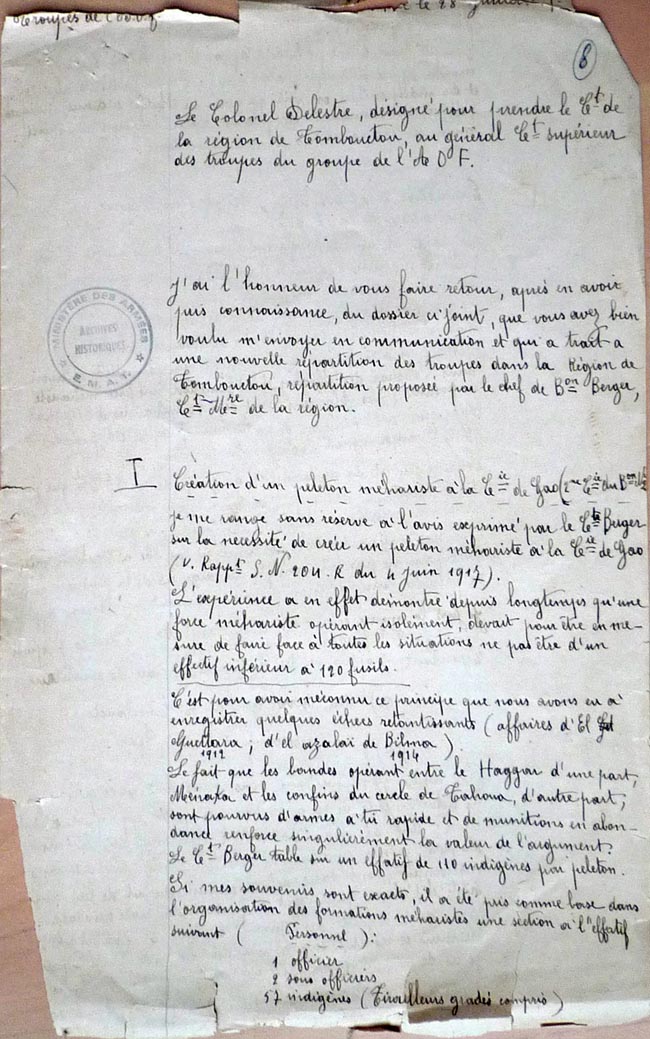 Troupes de l'A.O.F.
le 28
8
Le Colonel Delestre, désigné pour prendre le Ct de
la région de Tombouctou, au général Ct supérieur
des troupes du groupe de l'A O F.
J'ai l'honneur de vous faire retour, après en avoir
pris connaissance, du dossier ci joint, que vous avez bien
voulu m'envoyer en communication et qui a trait a
une nouvelle répartition des troupes dans la Région de
Tombouctou, répartition proposée par le chef de Bon Berger,
Ct Mre de la région.
MINISTÈRE DES ARMÉES
ARCHIVES
HISTORIQUES
E. M. A. T.
I
Création d'un peleton méhariste à la Cie de Gao (2me Cie du Bon
je me range sans réserve a l'avis exprimé par le Ct Berger
sur la nécessité de créer un peleton méhariste a la Cie de Gao
(V. Rappt S. N. 204. R du 4 juin 1917).
L'expérience a en effet démontré depuis longtemps qu'une
force méhariste opérant isolément, devait pour être en me-
sure de faire face à toutes les situations ne pas être d'un
effectif inférieur à 120 fusils.
C'est pour avoir méconnu ce principe que nous avons eu a
enregistrer quelques échecs retentissants (affaires d'El
Guettara, d'el azalaï de Bilma)
1912 1914
Le fait que les bandes opérant entre le Haggar d'une part,
Ménaka et les confins du cercle de Tahoua, d'autre part,
sont pourvus d'armes a tir rapide et de munitions en abon-
dance, renforce singulièrement la valeur de l'argument.
Le Ct Berger table sur un effectif de 110 indigènes par peleton.
Si mes souvenirs sont exacts, il a été pris comme base dans
l'organisation des formations méharistes une section a l'effectif
suivant ( Personnel ):
1 officier
2 sous officiers
57 indigènes (Tirailleurs gradés compris)